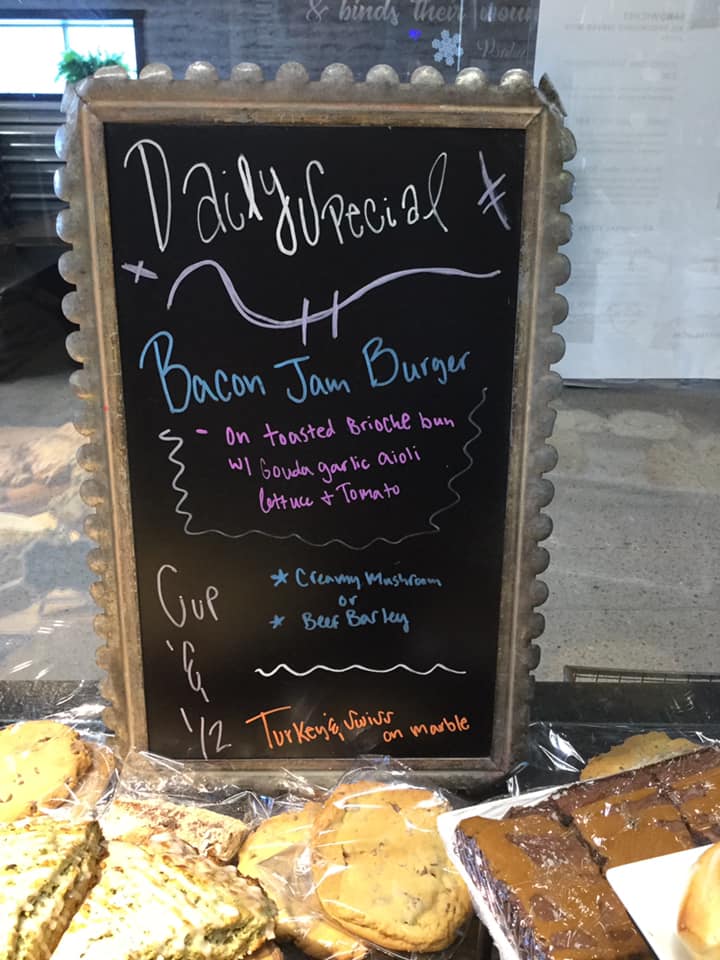 & binds their
Daily Special
Bacon Jam Burger
- On toasted Brioche bun
w/ Gouda garlic aioli
lettuce + Tomato
Cup
& 
1/2
* Creamy Mushroom
or
* Beef Barley
Turkey & Swiss
on marble